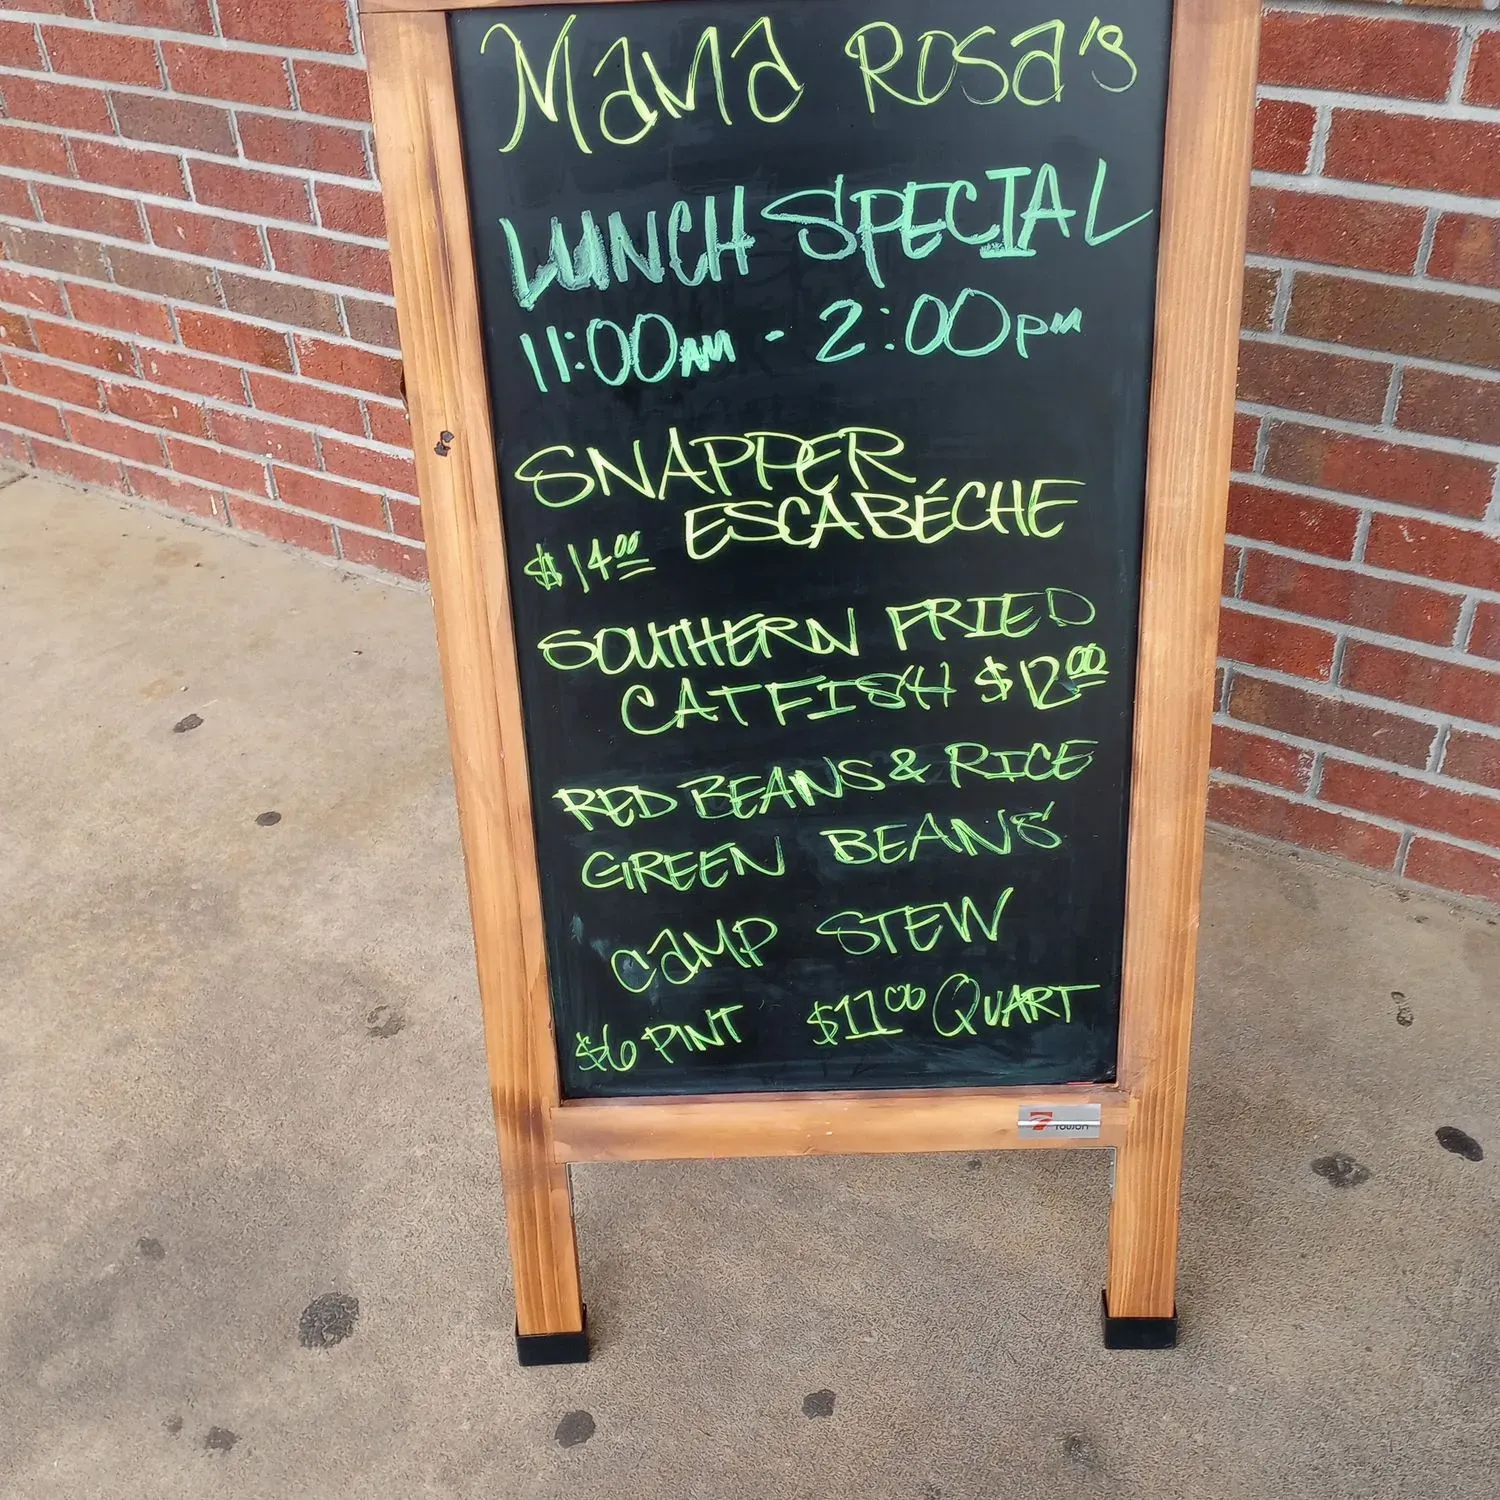 Mama Rosa's
LUNCH SPECIAL
11:00AM - 2:00PM
SNAPPER
ESCABÉCHE
$14.00
SOUTHERN FRIED
CATFISH $12.00
RED BEANS & RICE
GREEN BEANS
CAMP STEW
$6 PINT $11.00 QUART